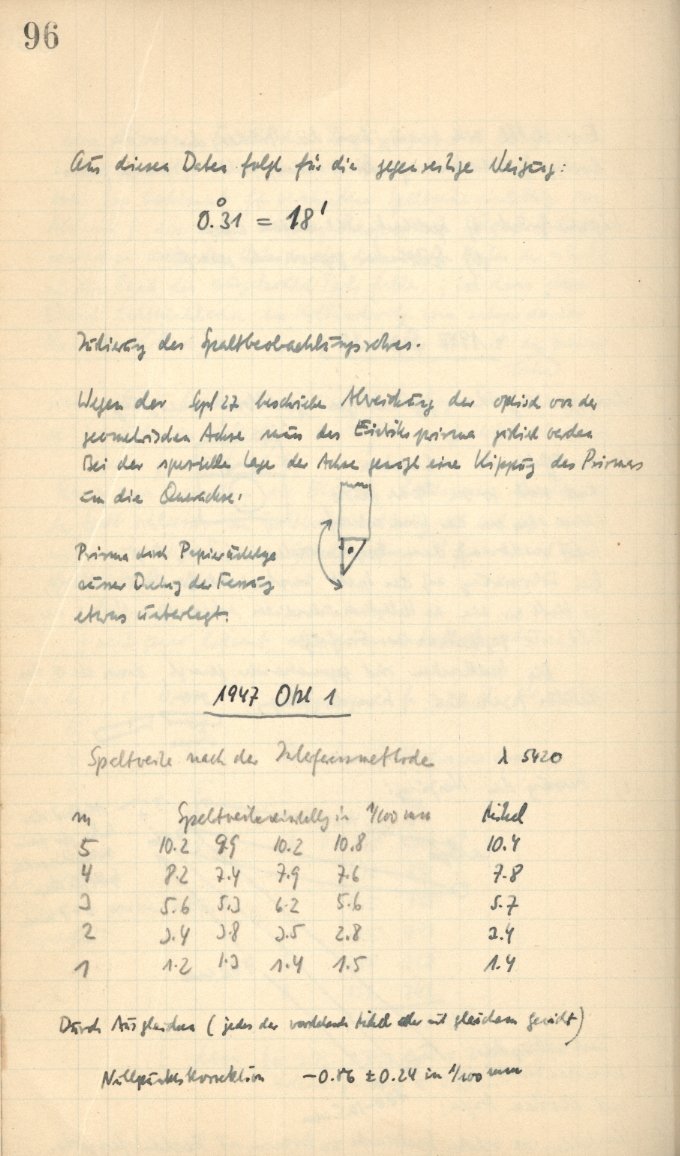 96
Aus diesen Daten folgt für die gegenseitige Neigung:
0.°31 = 18'
Justierung des Spaltbeobachtungsrohres.
Wegen der Sept 27 beschrieben Abweichung der optisch von der
geometrischen Achse muss das Eintrittsprisma justiert werden
Bei der speziellen Lage der Achse genügt eine Kippung des Prismas
um die Querachse.
Prisma durch Papier
ausser Drehung der Fassung
etwas unterlegt.
1947 Okt 1
Spaltweite nach der Interferenzmethode λ 5420
m Spaltweiteneinstellg in 1/100 mm Mittel
5 10.2 9.9 10.2 10.8 10.4
4 8.2 7.4 7.9 7.6 7.8
3 5.6 5.3 6.2 5.6 5.7
2 3.4 3.8 3.5 2.8 3.4
1 1.2 1.3 1.4 1.5 1.4
Durch Ausgleichen (jedes der Mittel mit gleichem Gewicht)
Nullpunktskorrektion −0.86 ± 0.24 in 1/100 mm